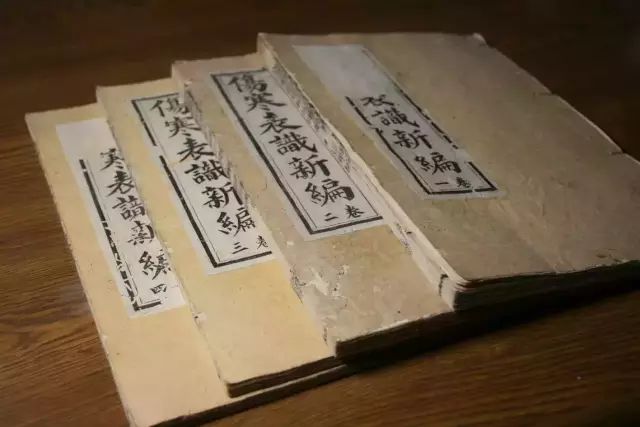 識新編
卷一
傷寒表識新編
卷二
傷寒表識新編
卷三
寒表
編
四